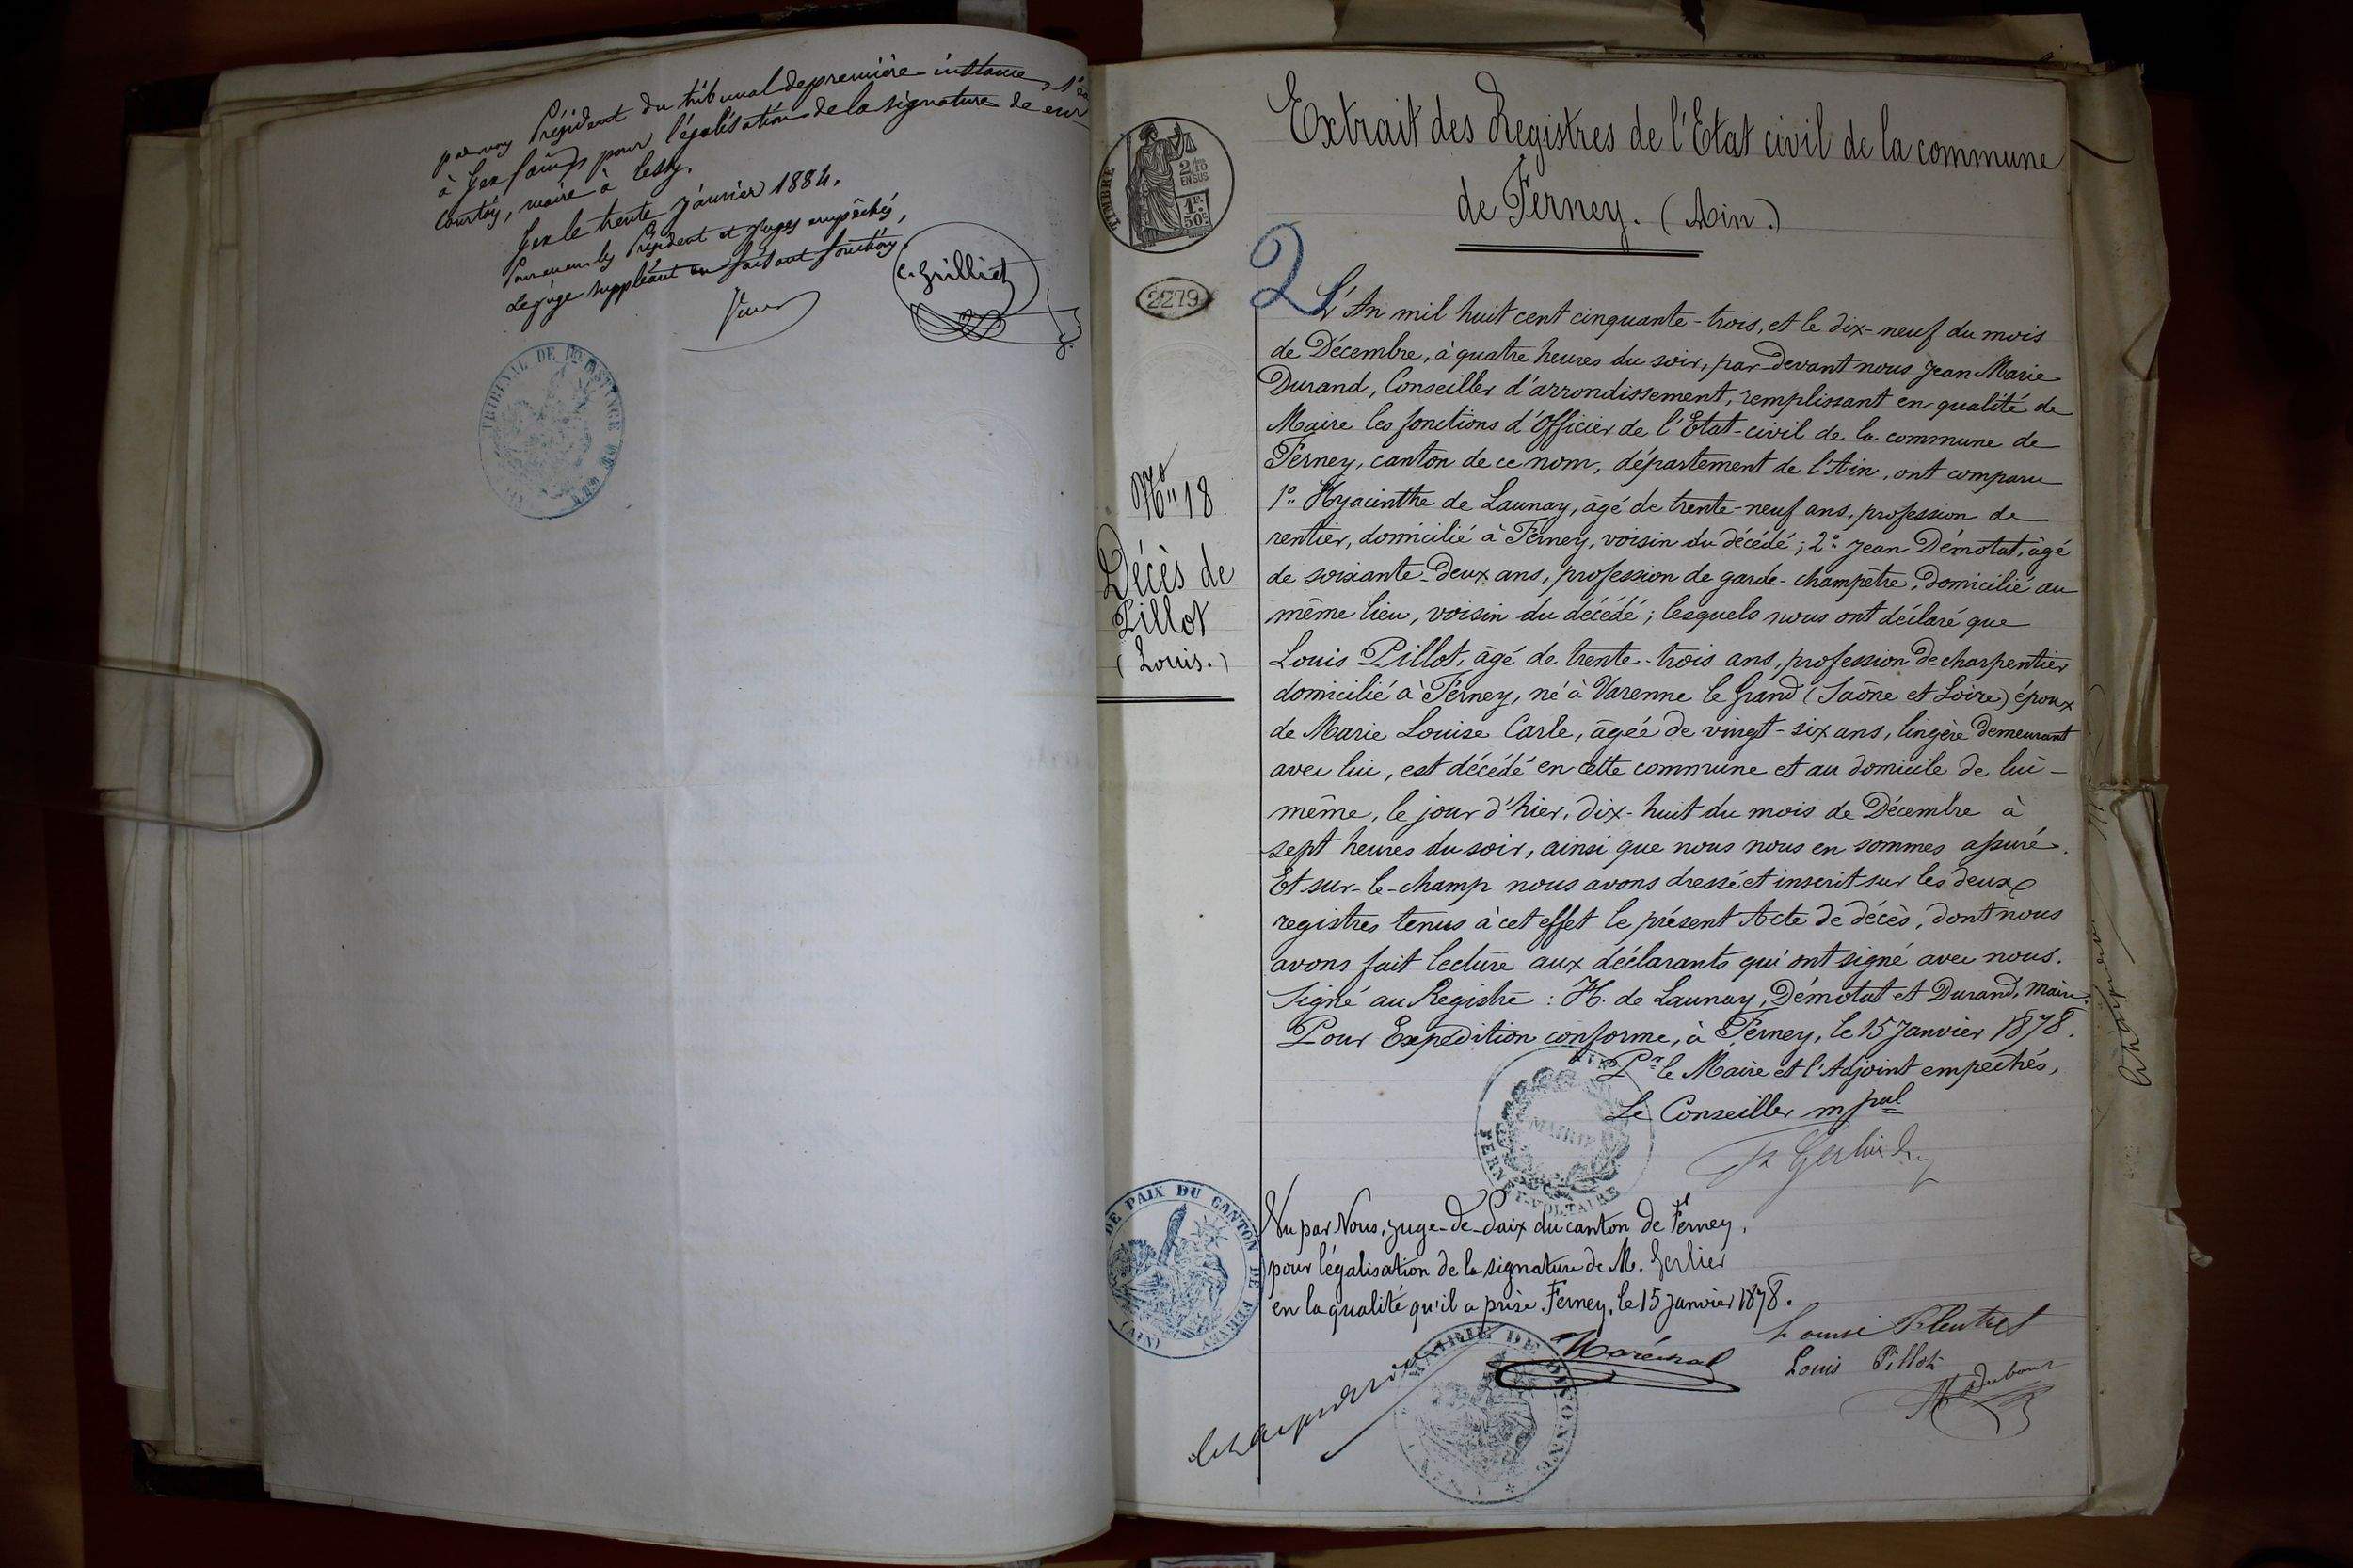 par nous Président du tribunal de première instance séant
à Gex (Ain) pour légalisation de la signature de
Courtois, maire à
Gex le trente janvier 1884.
Président et juges empêchés,
Le juge suppléant faisant fonctions
C. Grilliet
TRIBUNAL DE 1ERE INSTANCE DE GEX
TIMBRE
2/10
EN SUS
1F.
50C.
2279
Extrait des Registres de l'Etat civil de la commune
de Ferney. (Ain.)
2
No 18.
Décès de
Pillot
(Louis.)
L'An mil huit cent cinquante-trois, et le dix-neuf du mois
de Décembre, à quatre heures du soir, par-devant nous Jean Marie
Durand, Conseiller d'arrondissement, remplissant en qualité de
Maire les fonctions d'Officier de l'Etat-civil de la commune de
Ferney, canton de ce nom, département de l'Ain, ont comparu
1º Hyacinthe de Launay, âgé de trente-neuf ans, profession de
rentier, domicilié à Ferney, voisin du décédé; 2º Jean Démotat, âgé
de soixante-deux ans, profession de garde-champêtre, domicilié au
même lieu, voisin du décédé; lesquels nous ont déclaré que
Louis Pillot, âgé de trente-trois ans, profession de charpentier
domicilié à Ferney, né à Varenne le Grand (Saône et Loire) époux
de Marie Louise Carle, âgée de vingt-six ans, lingère demeurant
avec lui, est décédé en cette commune et au domicile de lui-
même, le jour d'hier, dix-huit du mois de Décembre à
sept heures du soir, ainsi que nous nous en sommes assuré.
Et sur-le-champ nous avons dressé et inscrit sur les deux
registres tenus à cet effet le présent Acte de décès, dont nous
avons fait lecture aux déclarants qui ont signé avec nous.
Signé au Registre: H. de Launay, Démotat et Durand, Maire.
Pour Expédition conforme, à Ferney, le 15 Janvier 1878.
Pr le Maire et l'Adjoint empêchés,
Le Conseiller mpal
MAIRIE
FERNEY-VOLTAIRE
Vu par Nous, Juge-de-Paix du canton de Ferney,
pour légalisation de la signature de M. Gerlier
en la qualité qu'il a prise. Ferney, le 15 janvier 1878.
DE PAIX DU CANTON DE FERNEY
(AIN)
Maréchal
Louis Pillot
Dubour
MAIRIE DE